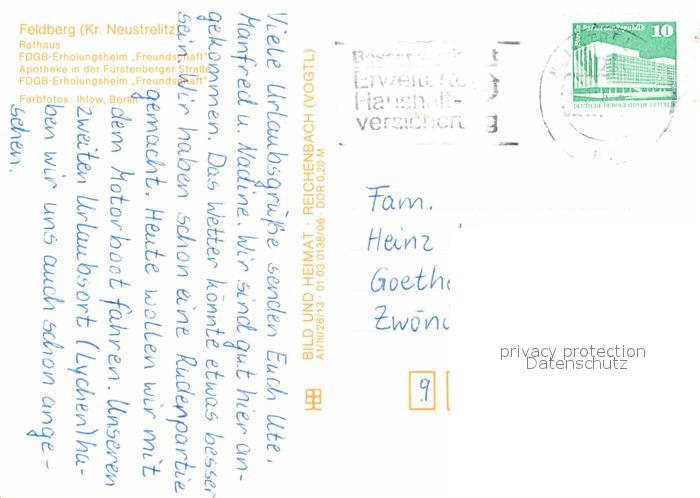 Feldberg (Kr. Neustrelitz)
Rathaus
FDGB-Erholungsheim „Freundschaft“
Apotheke in der Fürstenberger Straße
FDGB-Erholungsheim „Freundschaft“
Farbfotos: Ihlow, Berlin
Viele Urlaubsgrüße senden Euch Ute,
Manfred u. Nadine. Wir sind gut hier an-
gekommen. Das Wetter könnte etwas besser
sein. Wir haben schon eine Ruderpartie
gemacht. Heute wollen wir mit
dem Motorboot fahren. Unseren
zweiten Urlaubsort (Lychen) ha-
ben wir uns auch schon ange-
sehen.
BILD UND HEIMAT · REICHENBACH (VOGTL)
A1/III/26/13 · 01 03 0138/06 · DDR 0,20 M
Erweiterte
Haushalt-
versicherung
10
DEUTSCHE DEMOKRATISCHE REPUBLIK
Fam.
Heinz
Goethe
Zwöni
9
privacy protection
Datenschutz